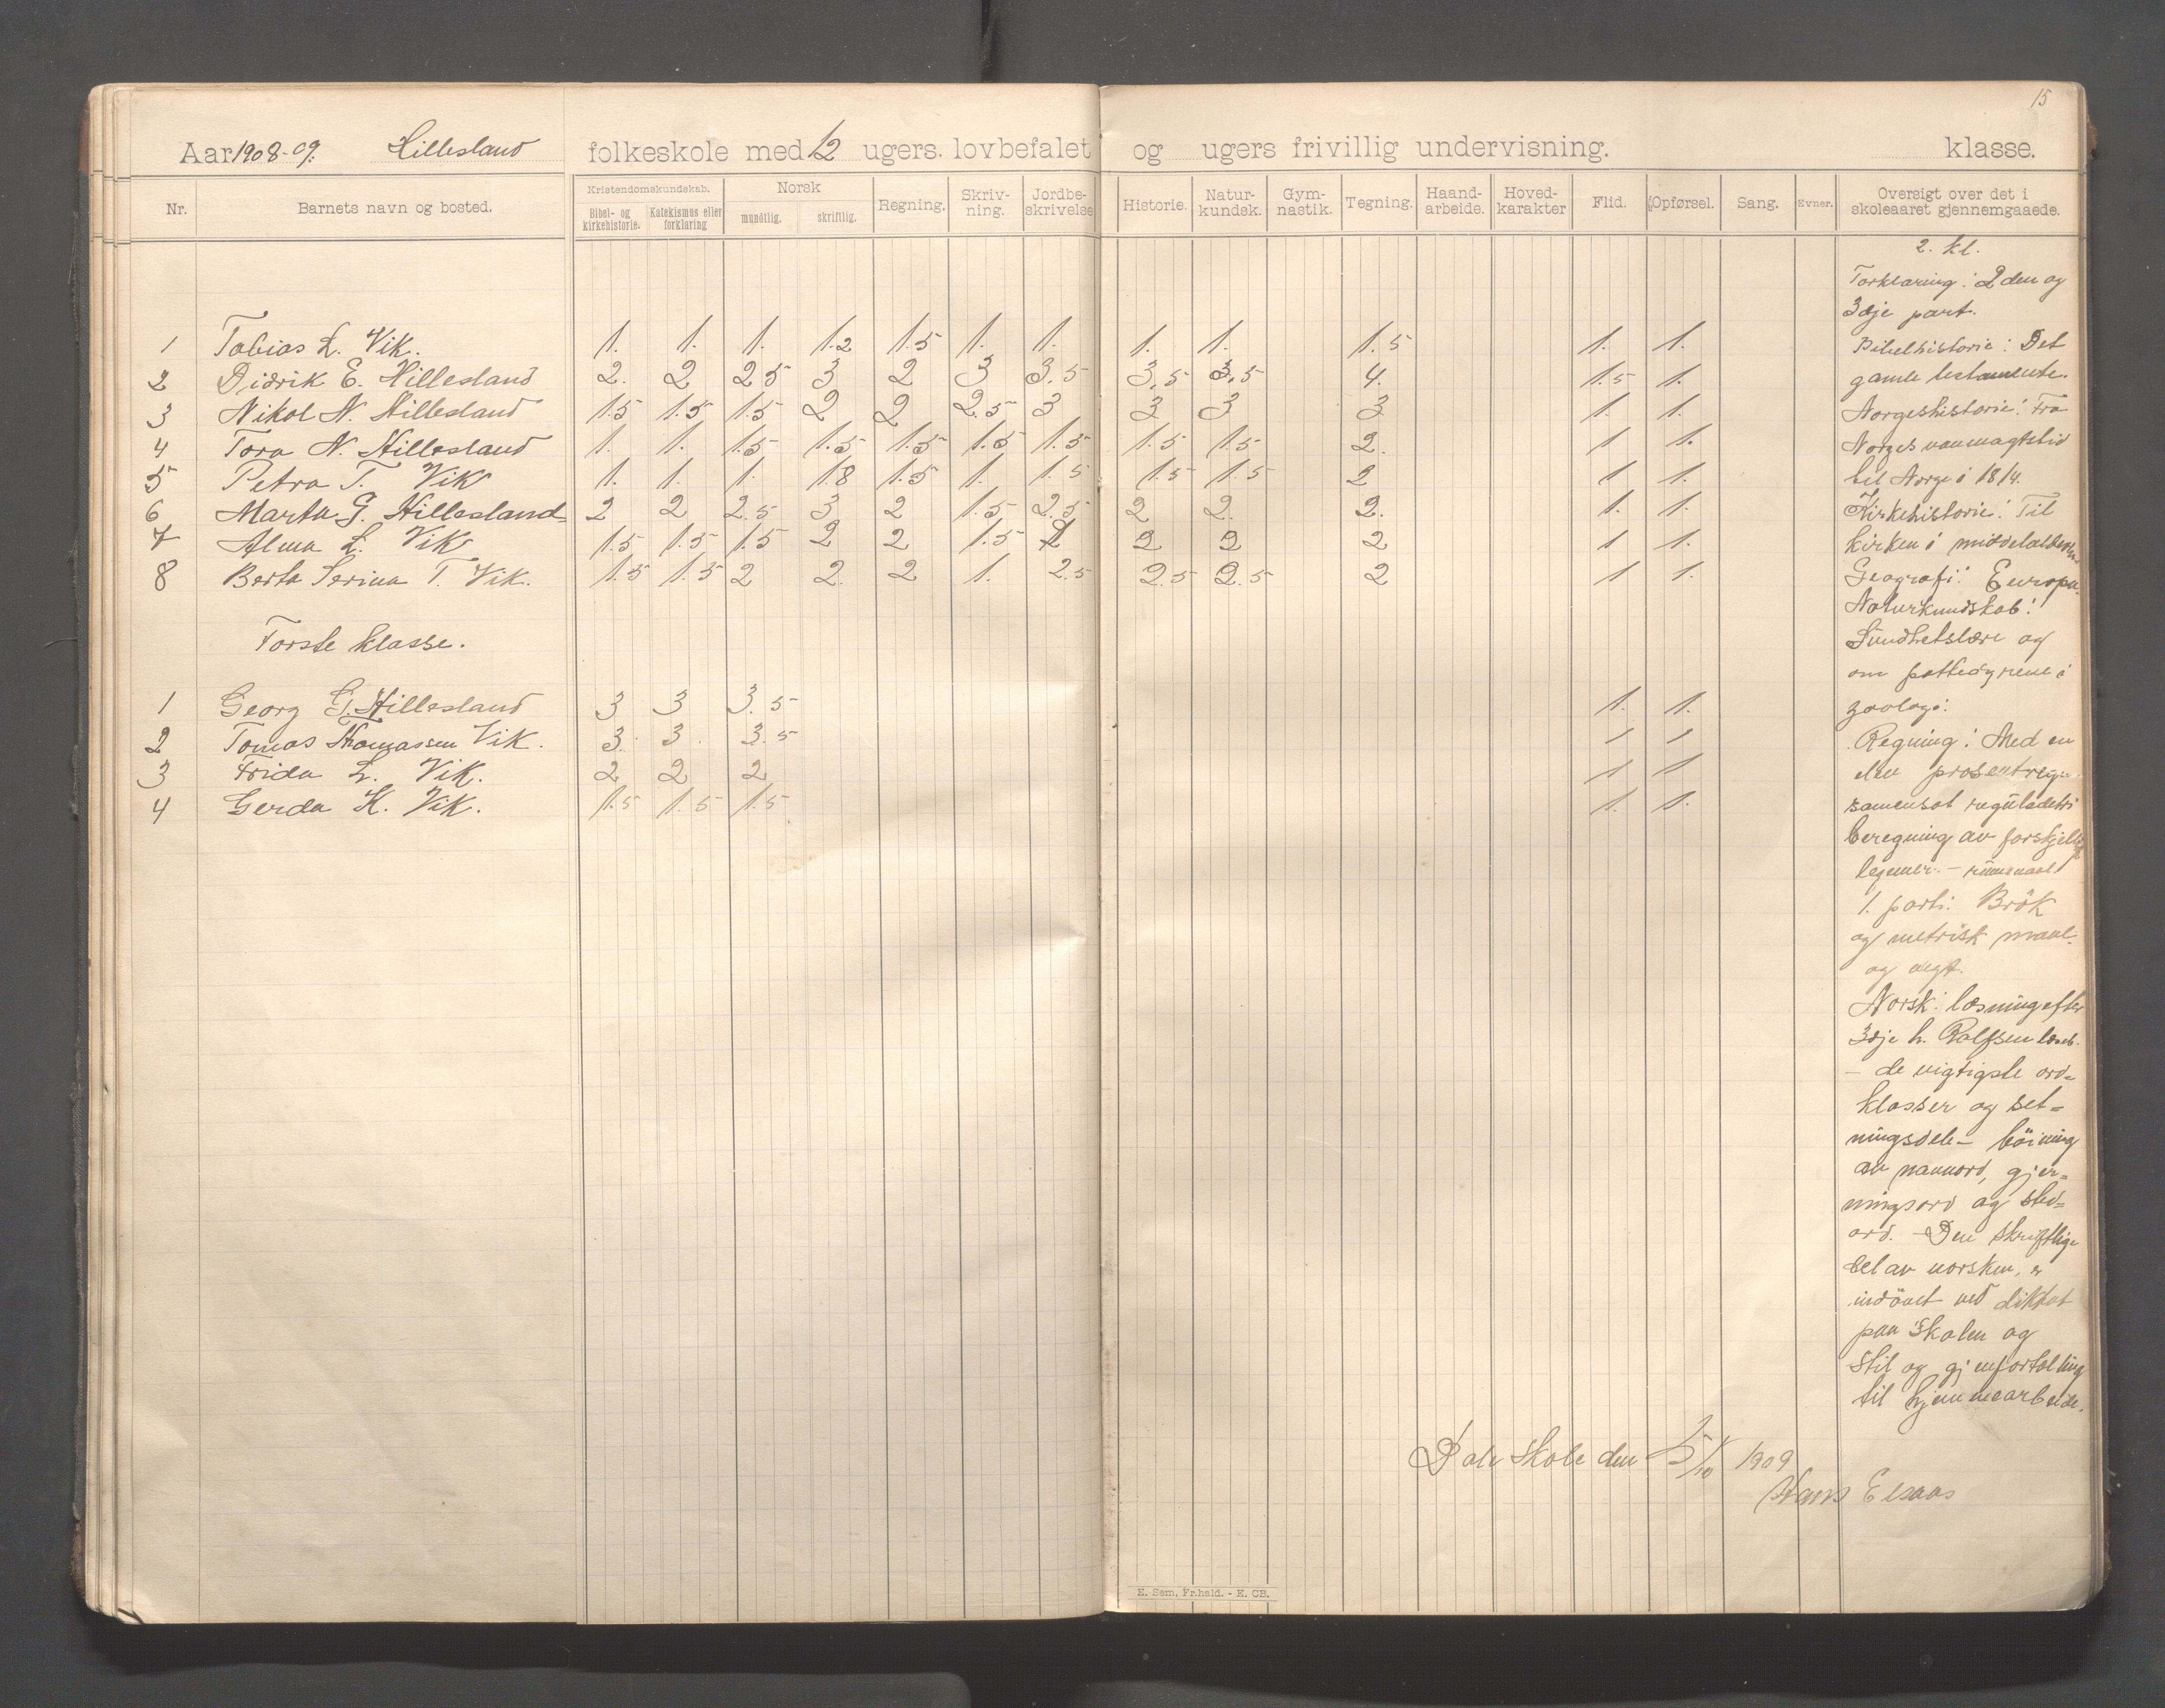 15
Aar 1908-09. Hillesland folkeskole med 12 ugers. lovbefalet og ugers frivillig undervisning. klasse.
Nr. Barnets navn og bosted. Kristendomskundskab. Bibel- og kirkehistorie. Katekismus eller forklaring Norsk mundtlig. skriftlig. Regning. Skriv-ning. Jordbe-skrivelse Historie. Natur-kundsk. Gym-nastik. Tegning. Haand-arbeide. Hoved-karakter Flid. Opførsel. Sang. Evner. Oversigt over det i skoleaaret gjennemgaaede.
1 Tobias L. Vik. 1. 1. 1. 1.2 1.5 1. 1. 1. 1. 1.5 1. 1.
2 Didrik E. Hillesland 2. 2 2.5 3 2 3 3.5 3.5 3.5 4. 1.5 1.
3 Nikol N. Hillesland 1.5 1.5 1.5 2 2 2.5 3 3 3 3 1. 1.
4 Tora N. Hillesland 1. 1. 1.5 1.5 1.5 1.5 1.5 1.5 1.5 2. 1 1.
5 Petra T. Vik 1. 1. 1. 1.8 1.5 1. 1.5 1.5 1.5 2 1 1.
6 Marta G. Hillesland 2 2 2.5 3 2 1.5 2.5 2 2. 2. 1. 1.
7 Alma L. Vik 1.5 1.5 1.5 2 2 1.5 2 2 2 2 1 1.
8 Berta Serina T. Vik. 1.5 1.5 2 2. 2 1. 2.5 2.5 2.5 2 1 1.
Første klasse.
1 Georg G. Hillesland 3 3 3.5 1. 1.
2 Tomas Thomassen Vik. 3. 3. 3.5 1 1
3 Frida L. Vik. 2 2 2 1 1
4 Gerda K. Vik. 1.5 1.5 1.5 1. 1.
2. kl.
Forklaring: 2den og
3dje part.
Bibelhistorie: Det
gamle testamente.
Norgeshistorie: Fra
Norges vanmagtstid
til Norge i 1814.
Kirkehistorie: Til
kirken i middelalderen
Geografi: Europa.
Naturkundskab:
Sundhetslære og
om pattedyrene i
zoologi.
Regning: Med en
elev prosentregn.
samensat reguladetri
beregning av forskjellige
legemer. - rummaal
1. parti: Brøk
og metrisk maal-
og vegt.
Norsk: læsning efter
3dje h. Rolfsen læseb.
- de vigtigste ord-
klasser og set-
ningsdele - bøining
av navnord, gjer-
ningsord og sted-
ord. - Den skriftlige
del av norsken, er
indøvet ved diktat
paa skolen og
stil og gjenfortælling
til hjemmearbeide.
Dale skole den 5/10 1909
Hans Elsaas
E. Sem, Fr.hald. - E. CB.